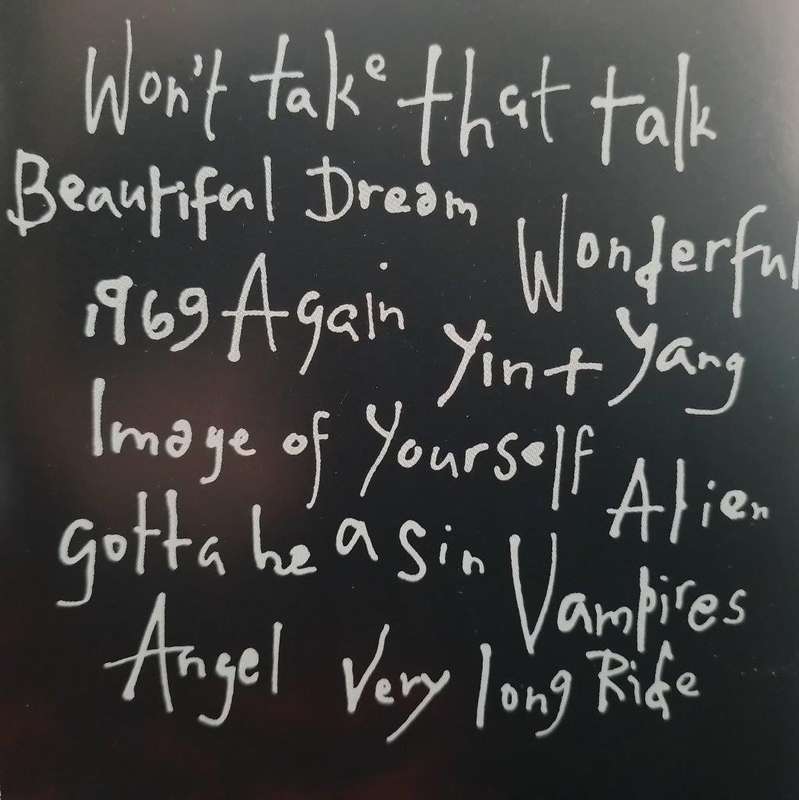 Won't take that talk
Beautiful Dream
Wonderful
1969 Again
Yin + Yang
Image of Yourself
Alien
gotta be a sin
Vampires
Angel
Very long Ride